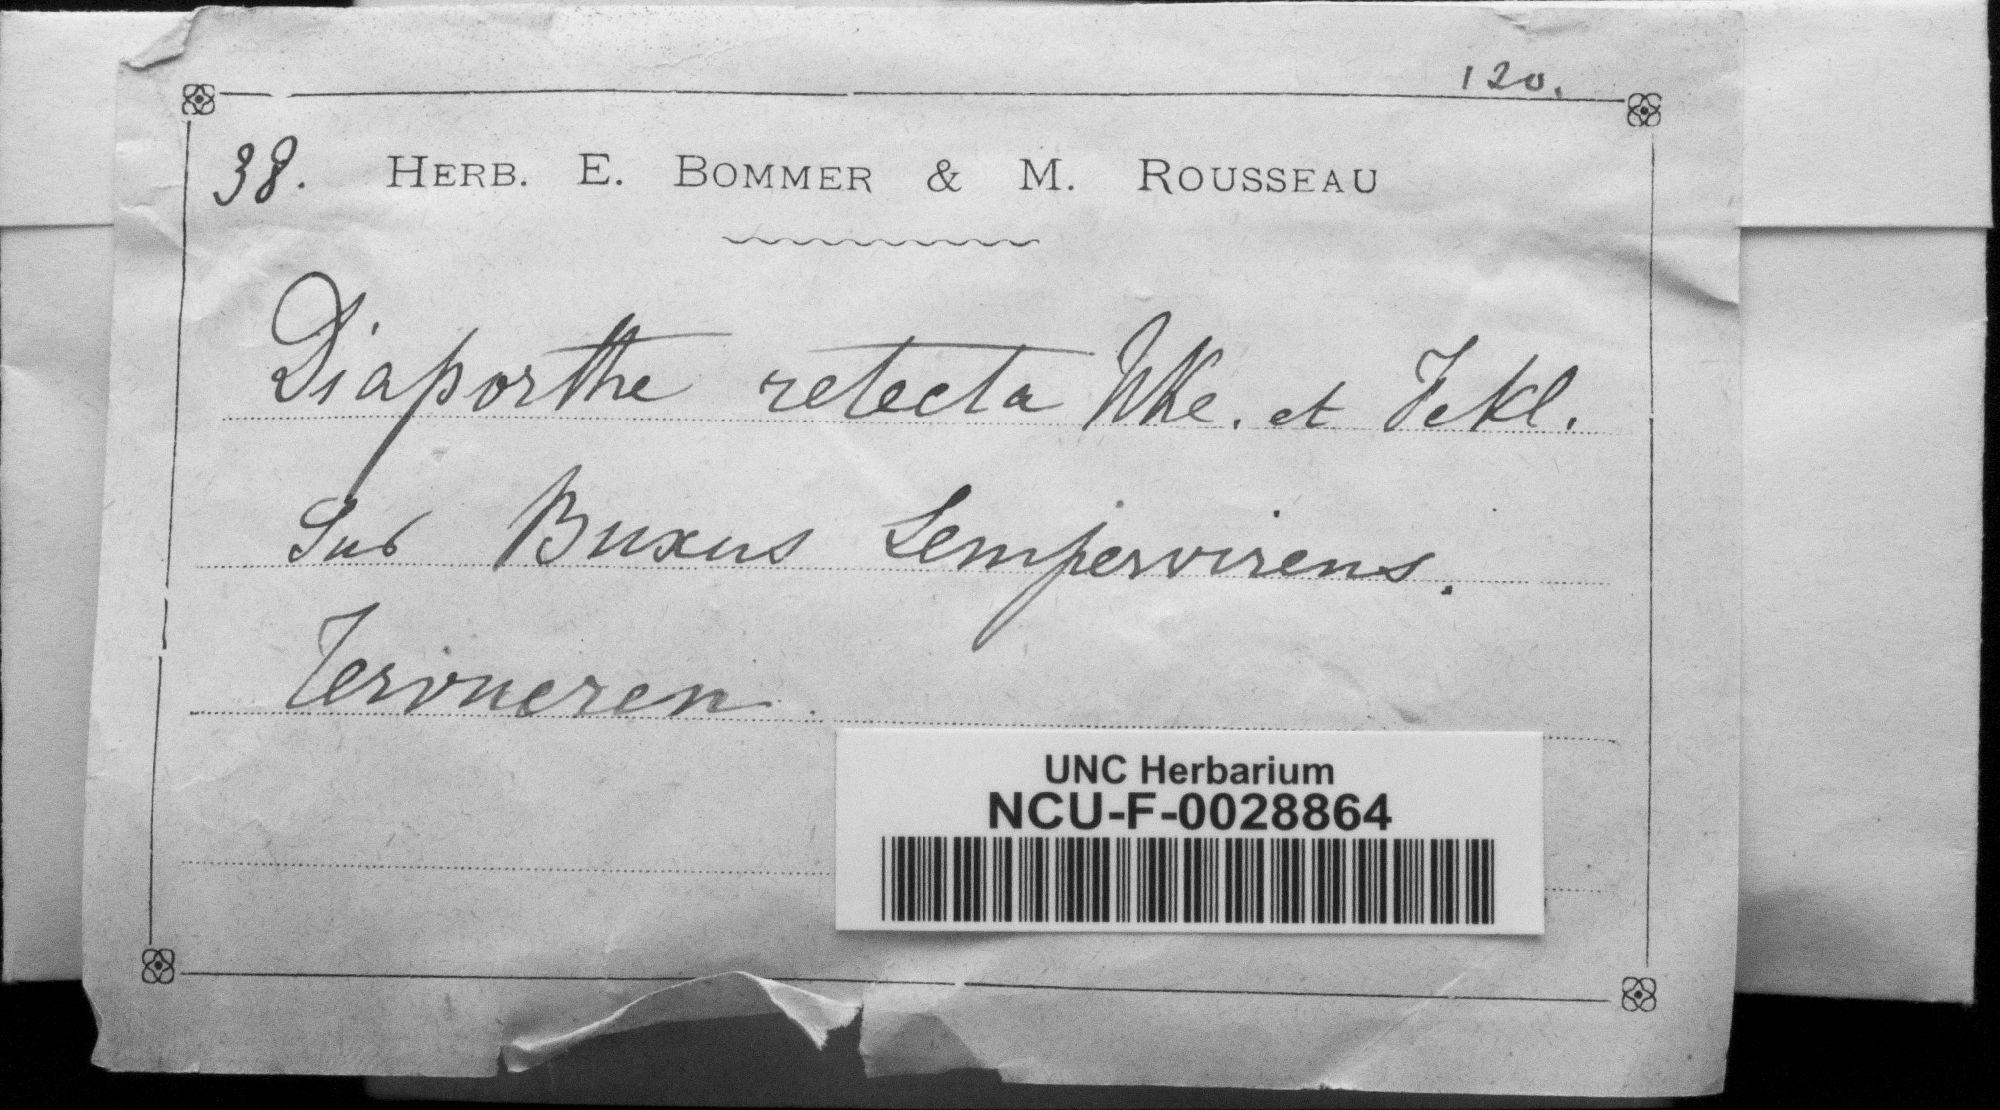 120.
38. HERB. E. BOMMER & M. ROUSSEAU
Diaporthe retecta Nke. et Fckl.
Sub Buxus Sempervirens.
Tervueren.
UNC Herbarium
NCU-F-0028864